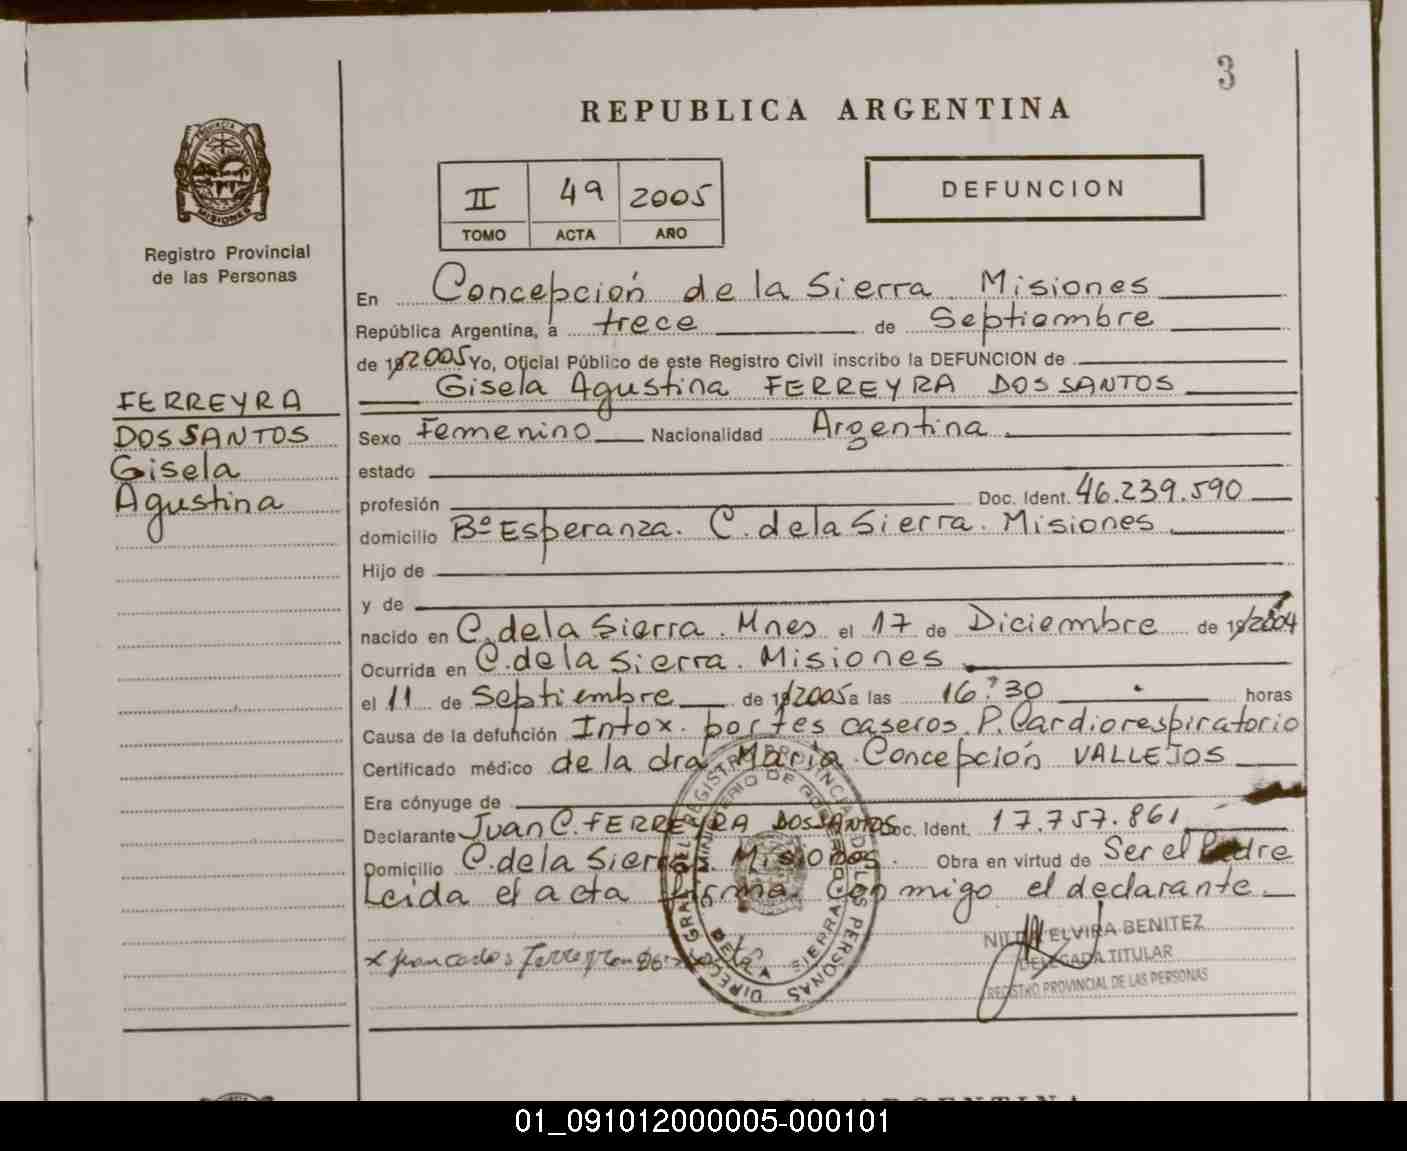 3
REPUBLICA ARGENTINA
PROVINCIA
MISIONES
Registro Provincial
de las Personas
II 49 2005
TOMO ACTA AÑO
DEFUNCION
En Concepción de la Sierra. Misiones
República Argentina, a trece de Septiembre
de 19/2005 Yo, Oficial Público de este Registro Civil inscribo la DEFUNCION de
Gisela Agustina FERREYRA DOS SANTOS
FERREYRA
DOS SANTOS
Gisela
Agustina
Sexo Femenino Nacionalidad Argentina
estado
profesión Doc. Ident. 46.239.590
domicilio Bº Esperanza. C. de la Sierra. Misiones
Hijo de
y de
nacido en C. de la Sierra. Mnes el 17 de Diciembre de 19/2004
Ocurrida en C. de la Sierra. Misiones
el 11 de Septiembre de 19/2005 a las 16:30 horas
Causa de la defunción Intox. por tes caseros. P. Cardiorespiratorio
Certificado médico de la dra. María Concepción VALLEJOS
Era cónyuge de
Declarante Juan C. FERREYRA DOS SANTOS Doc. Ident. 17.757.861
Domicilio C. de la Sierra. Misiones. Obra en virtud de Ser el Padre
Leida el acta firma conmigo el declarante
x Juan Carlos Ferreyra
NILDA ELVIRA BENITEZ
DELEGADA TITULAR
REGISTRO PROVINCIAL DE LAS PERSONAS
ARGENTINA
01_091012000005-000101